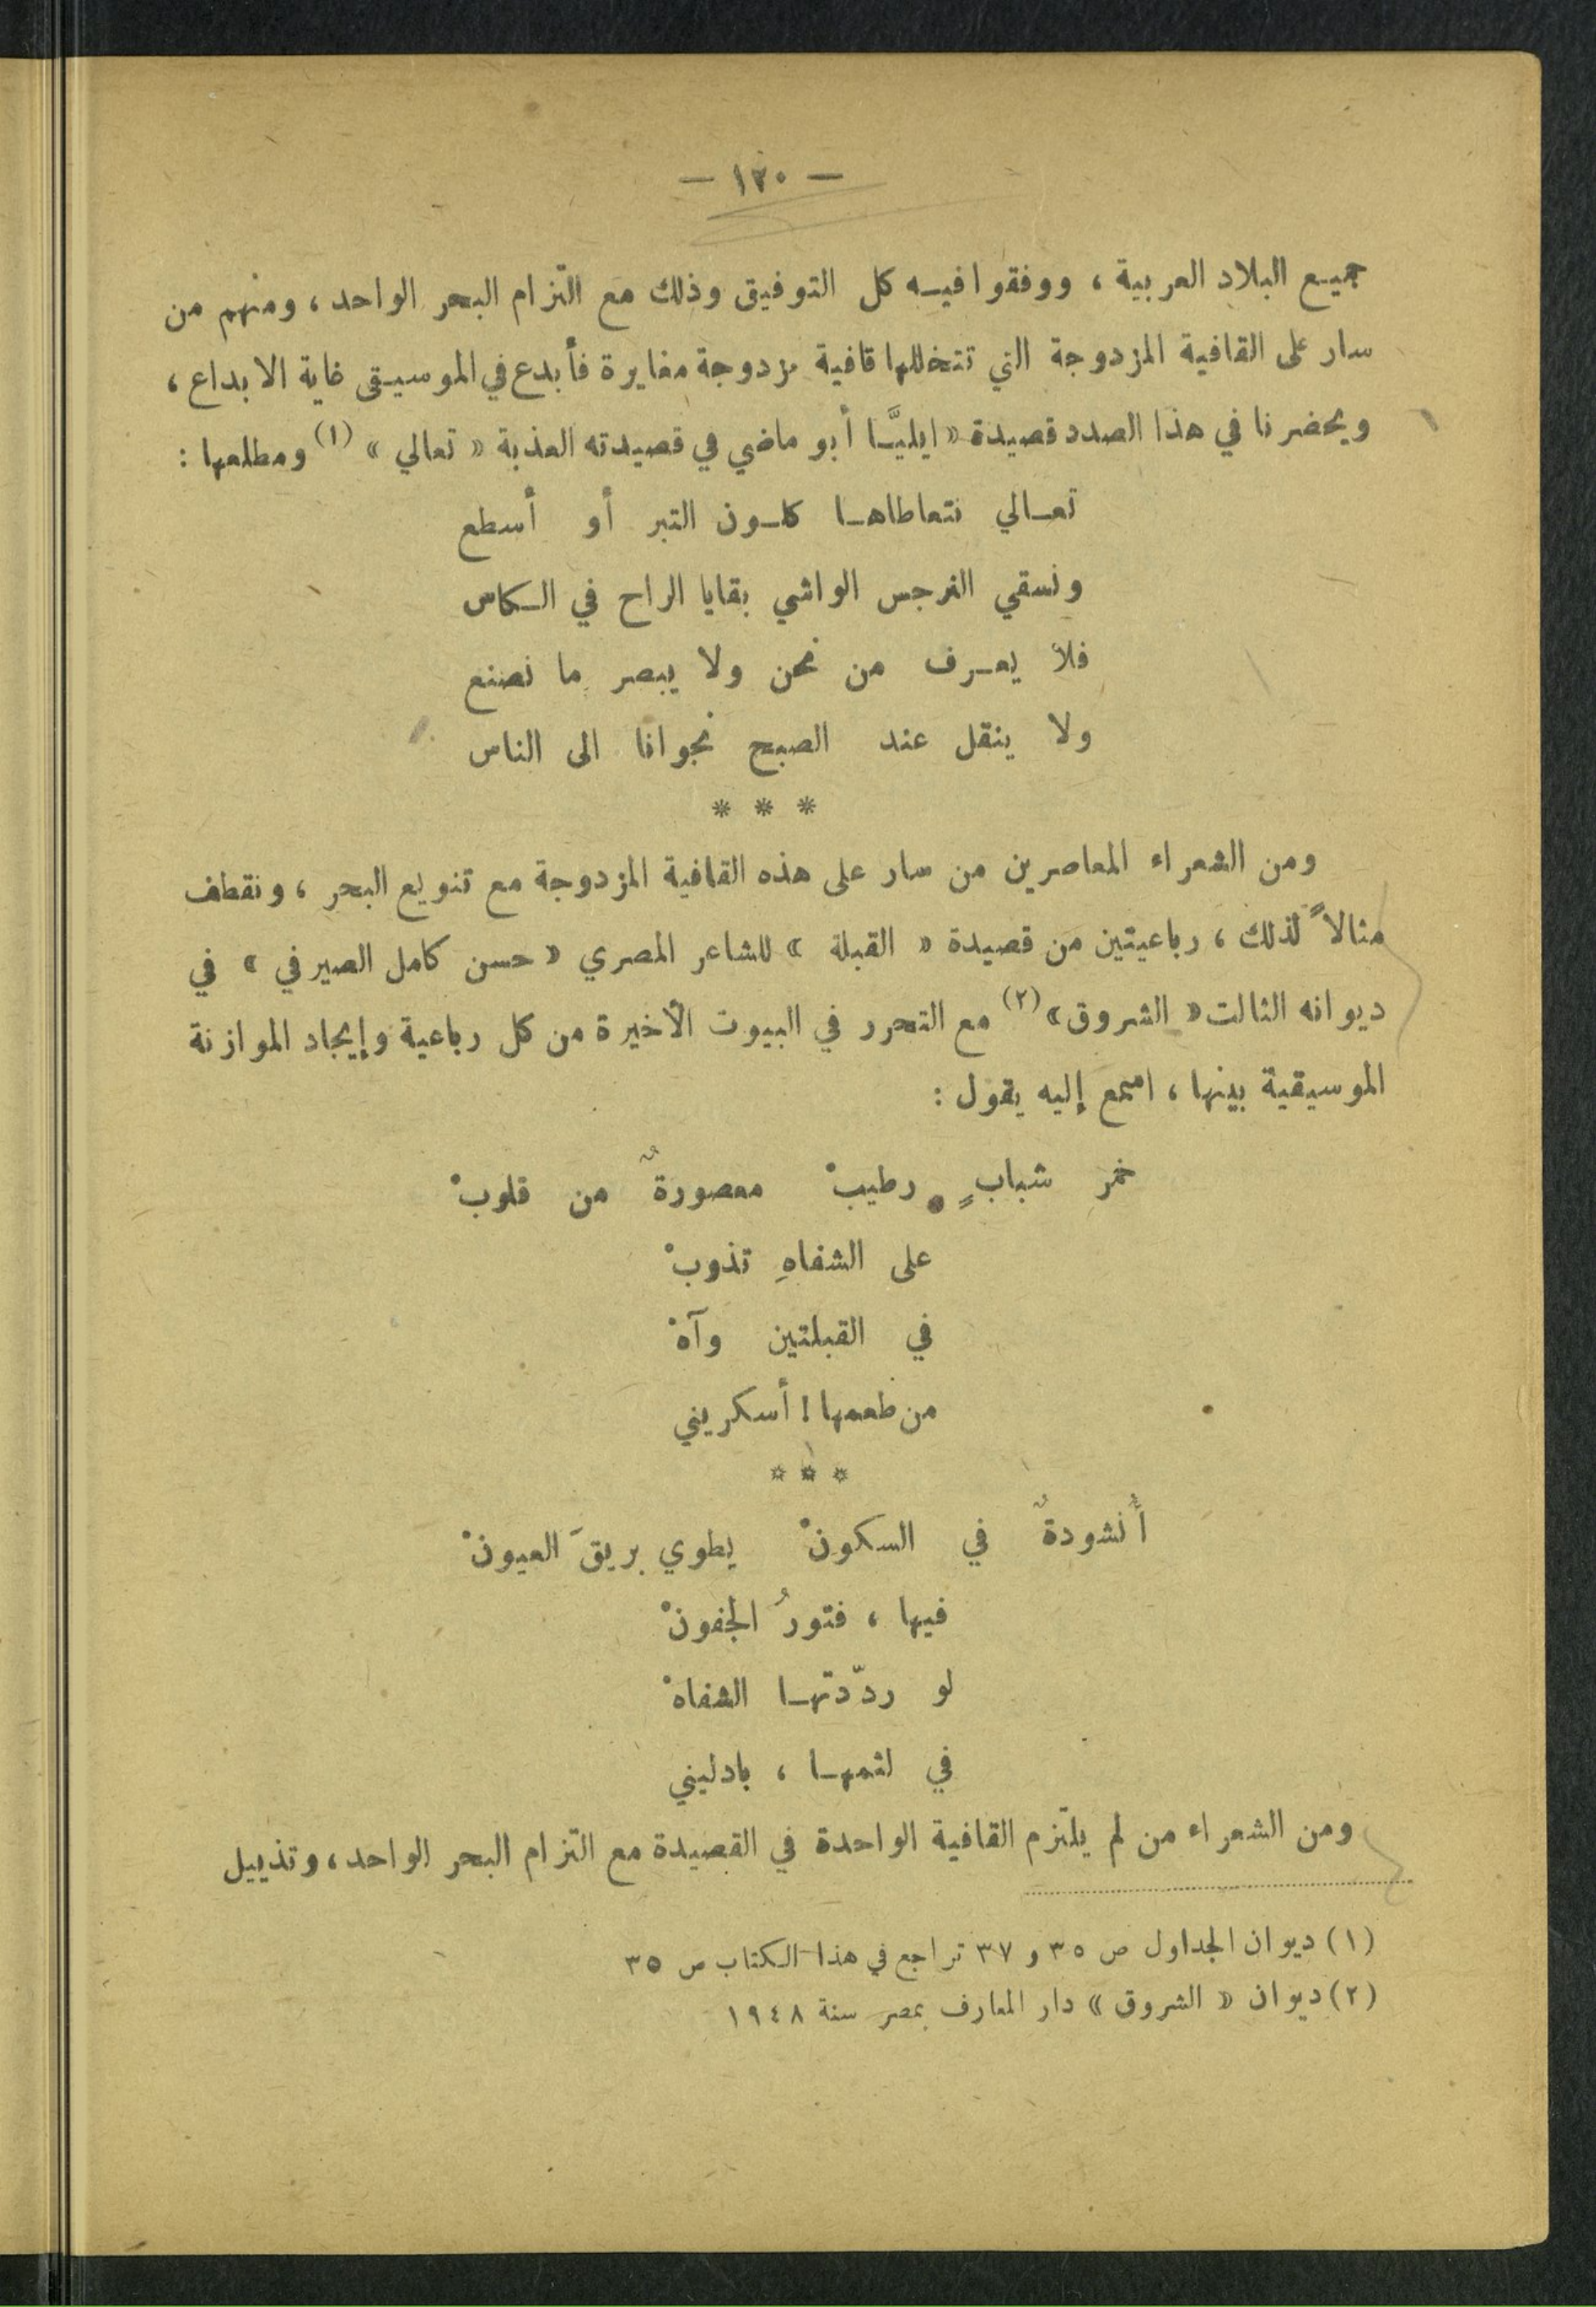 — ١٣٠ —
جميع البلاد العربية ، ووفقوا فيه كل التوفيق وذلك مع التزام البحر الواحد ، ومنهم من
سار على القافية المزدوجة التي تتخللها قافية مزدوجة مغايرة فأبدع في الموسيقى غاية الابداع ،
ويحضرنا في هذا الصدد قصيدة « ايليَّا أبو ماضي في قصيدته العذبة « تعالي » (١) ومطلعها :
تعالي نتعاطاها كلون التبر أو أسطع
ونسقي النرجس الواشي بقايا الراح في الكاس
فلا يعرف من نحن ولا يبصر ما نصنع
ولا ينقل عند الصبح نجوانا الى الناس
* * *
ومن الشعراء المعاصرين من سار على هذه القافية المزدوجة مع تنويع البحر ، ونقطف
مثالاً لذلك ، رباعيتين من قصيدة « القبلة » للشاعر المصري « حسن كامل الصيرفي » في
ديوانه الثالت « الشروق » (٢) مع التحرر في البيوت الأخيرة من كل رباعية وإيجاد الموازنة
الموسيقية بينها ، اسمع إليه يقول :
خمر شبابٍ رطيبْ معصورةٌ من قلوبْ
على الشفاهِ تذوبْ
في القبلتين وآهْ
من طعمها ! أسكريني
* * *
أُنشودةٌ في السكونْ يطوي بريقَ العيونْ
فيها ، فتورُ الجفونْ
لو ردّدتها الشفاهْ
في لثمها ، بادليني
ومن الشعراء من لم يلتزم القافية الواحدة في القصيدة مع التزام البحر الواحد ، وتذييل
(١) ديوان الجداول ص ٣٥ و ٣٧ تراجع في هذا الكتاب ص ٣٥
(٢) ديوان « الشروق » دار المعارف بمصر سنة ١٩٤٨